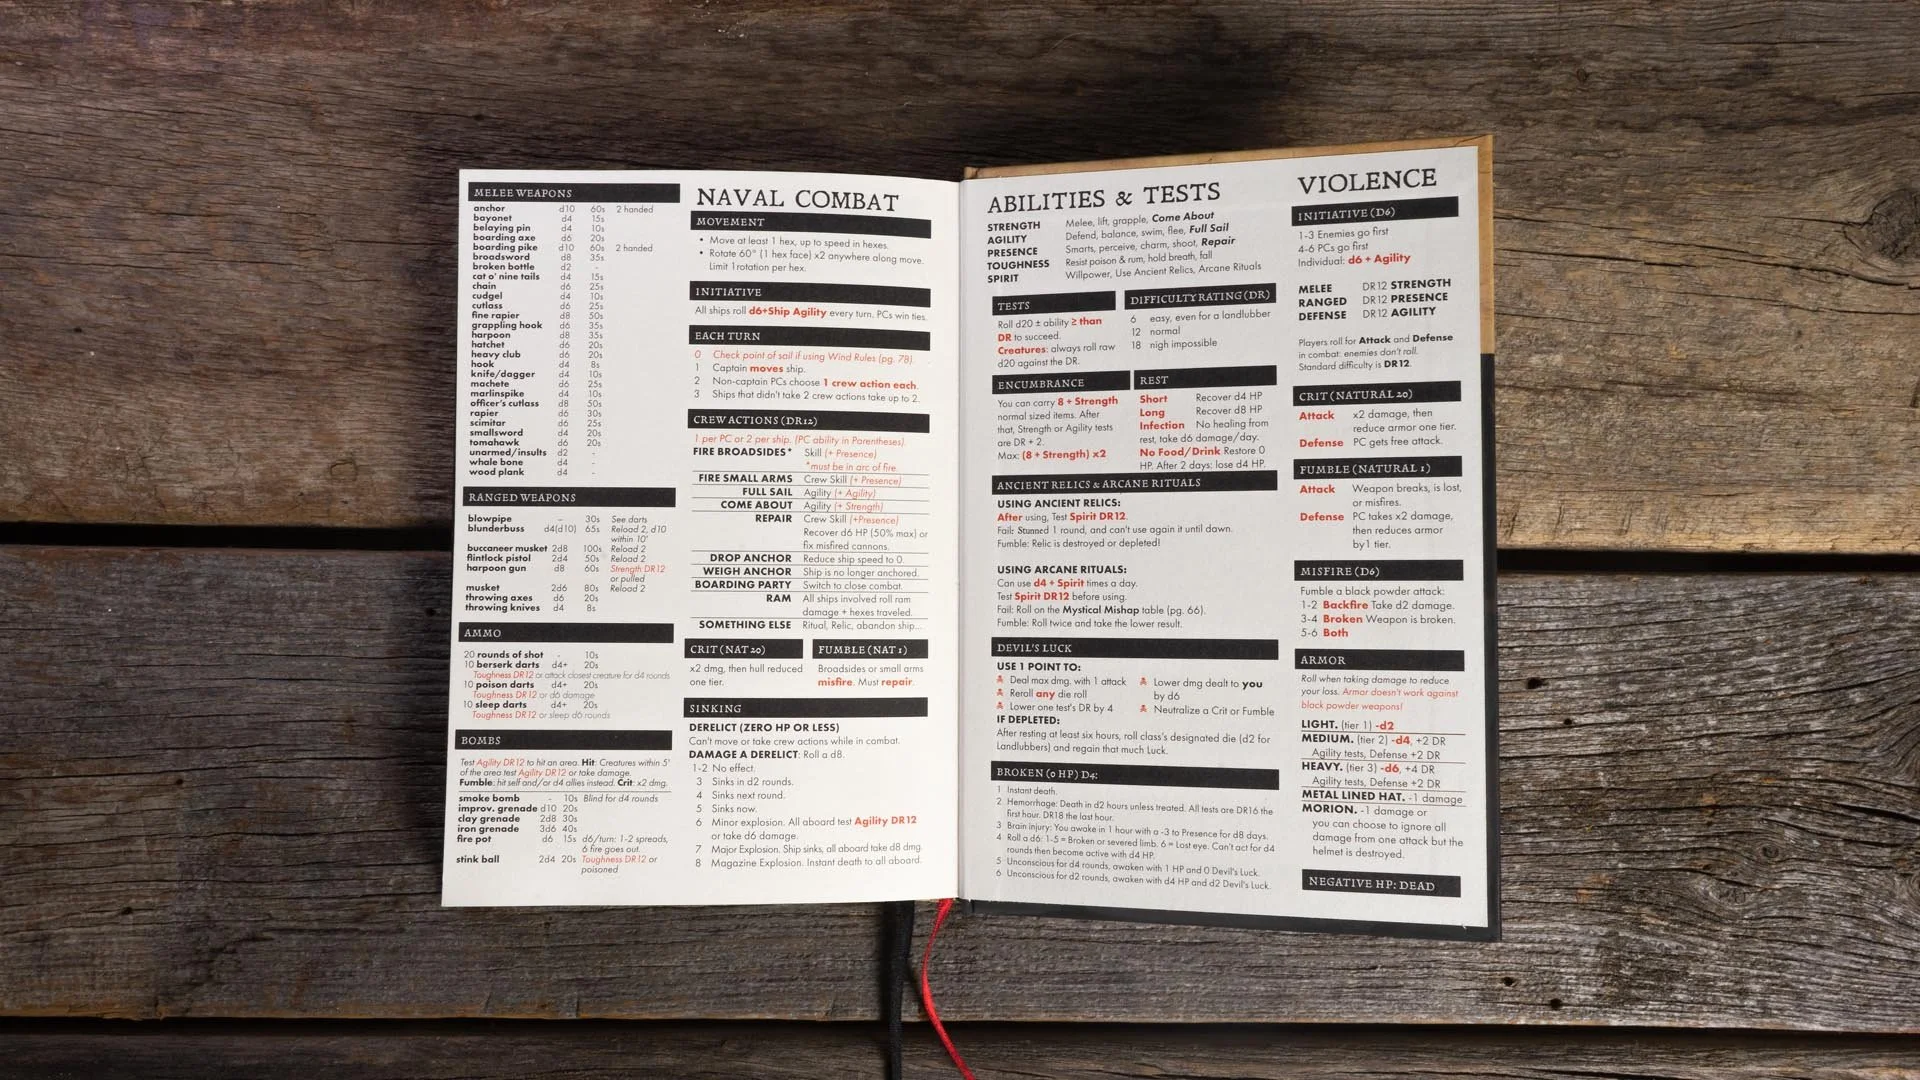 MELEE WEAPONS
anchor d10 60s 2 handed
bayonet d4 15s
belaying pin d4 10s
boarding axe d6 20s
boarding pike d10 60s 2 handed
broadsword d8 35s
broken bottle d2 -
cat o' nine tails d4 15s
chain d6 25s
cudgel d4 10s
cutlass d6 25s
fine rapier d8 50s
grappling hook d6 35s
harpoon d8 35s
hatchet d6 20s
heavy club d6 20s
hook d4 8s
knife/dagger d4 10s
machete d6 25s
marlinspike d4 10s
officer's cutlass d8 50s
rapier d6 30s
scimitar d6 25s
smallsword d4 20s
tomahawk d6 20s
unarmed/insults d2 -
whale bone d4 -
wood plank d4 -
RANGED WEAPONS
blowpipe - 30s See darts
blunderbuss d4(d10) 65s Reload 2, d10
within 10'
buccaneer musket 2d8 100s Reload 2
flintlock pistol 2d4 50s Reload 2
harpoon gun d8 60s Strength DR12
or pulled
musket 2d6 80s Reload 2
throwing axes d6 20s
throwing knives d4 8s
AMMO
20 rounds of shot - 10s
10 berserk darts d4+ 20s
Toughness DR12 or attack closest creature for d4 rounds
10 poison darts d4+ 20s
Toughness DR12 or d6 damage
10 sleep darts d4+ 20s
Toughness DR12 or sleep d6 rounds
BOMBS
Test Agility DR12 to hit an area. Hit: Creatures within 5'
of the area test Agility DR12 or take damage.
Fumble: hit self and/or d4 allies instead. Crit: x2 dmg.
smoke bomb - 10s Blind for d4 rounds
improv. grenade d10 20s
clay grenade 2d8 30s
iron grenade 3d6 40s
fire pot d6 15s d6/turn: 1-2 spreads,
6 fire goes out.
stink ball 2d4 20s Toughness DR12 or
poisoned
NAVAL COMBAT
MOVEMENT
• Move at least 1 hex, up to speed in hexes.
• Rotate 60° (1 hex face) x2 anywhere along move.
Limit 1 rotation per hex.
INITIATIVE
All ships roll d6+Ship Agility every turn. PCs win ties.
EACH TURN
0 Check point of sail if using Wind Rules (pg. 78).
1 Captain moves ship.
2 Non-captain PCs choose 1 crew action each.
3 Ships that didn't take 2 crew actions take up to 2.
CREW ACTIONS (DR12)
1 per PC or 2 per ship. (PC ability in Parentheses).
FIRE BROADSIDES* Skill (+ Presence)
*must be in arc of fire.
FIRE SMALL ARMS Crew Skill (+ Presence)
FULL SAIL Agility (+ Agility)
COME ABOUT Agility (+ Strength)
REPAIR Crew Skill (+Presence)
Recover d6 HP (50% max) or
fix misfired cannons.
DROP ANCHOR Reduce ship speed to 0.
WEIGH ANCHOR Ship is no longer anchored.
BOARDING PARTY Switch to close combat.
RAM All ships involved roll ram
damage + hexes traveled.
SOMETHING ELSE Ritual, Relic, abandon ship...
CRIT (NAT 20)
x2 dmg, then hull reduced
one tier.
FUMBLE (NAT 1)
Broadsides or small arms
misfire. Must repair.
SINKING
DERELICT (ZERO HP OR LESS)
Can't move or take crew actions while in combat.
DAMAGE A DERELICT: Roll a d8.
1-2 No effect.
3 Sinks in d2 rounds.
4 Sinks next round.
5 Sinks now.
6 Minor explosion. All aboard test Agility DR12
or take d6 damage.
7 Major Explosion. Ship sinks, all aboard take d8 dmg.
8 Magazine Explosion. Instant death to all aboard.
ABILITIES & TESTS
STRENGTH Melee, lift, grapple, Come About
AGILITY Defend, balance, swim, flee, Full Sail
PRESENCE Smarts, perceive, charm, shoot, Repair
TOUGHNESS Resist poison & rum, hold breath, fall
SPIRIT Willpower, Use Ancient Relics, Arcane Rituals
TESTS
Roll d20 ± ability ≥ than
DR to succeed.
Creatures: always roll raw
d20 against the DR.
DIFFICULTY RATING (DR)
6 easy, even for a landlubber
12 normal
18 nigh impossible
ENCUMBRANCE
You can carry 8 + Strength
normal sized items. After
that, Strength or Agility tests
are DR + 2.
Max: (8 + Strength) x2
REST
Short Recover d4 HP
Long Recover d8 HP
Infection No healing from
rest, take d6 damage/day.
No Food/Drink Restore 0
HP. After 2 days: lose d4 HP.
ANCIENT RELICS & ARCANE RITUALS
USING ANCIENT RELICS:
After using, Test Spirit DR12.
Fail: Stunned 1 round, and can't use again it until dawn.
Fumble: Relic is destroyed or depleted!
USING ARCANE RITUALS:
Can use d4 + Spirit times a day.
Test Spirit DR12 before using.
Fail: Roll on the Mystical Mishap table (pg. 66).
Fumble: Roll twice and take the lower result.
DEVIL'S LUCK
USE 1 POINT TO:
Deal max dmg. with 1 attack
Reroll any die roll
Lower one test's DR by 4
Lower dmg dealt to you
by d6
Neutralize a Crit or Fumble
IF DEPLETED:
After resting at least six hours, roll class's designated die (d2 for
Landlubbers) and regain that much Luck.
BROKEN (0 HP) D4:
1 Instant death.
2 Hemorrhage: Death in d2 hours unless treated. All tests are DR16 the
first hour. DR18 the last hour.
3 Brain injury: You awake in 1 hour with a -3 to Presence for d8 days.
4 Roll a d6: 1-5 = Broken or severed limb. 6 = Lost eye. Can't act for d4
rounds then become active with d4 HP.
5 Unconscious for d4 rounds, awaken with 1 HP and 0 Devil's Luck.
6 Unconscious for d2 rounds, awaken with d4 HP and d2 Devil's Luck.
VIOLENCE
INITIATIVE (D6)
1-3 Enemies go first
4-6 PCs go first
Individual: d6 + Agility
MELEE DR12 STRENGTH
RANGED DR12 PRESENCE
DEFENSE DR12 AGILITY
Players roll for Attack and Defense
in combat: enemies don't roll.
Standard difficulty is DR12.
CRIT (NATURAL 20)
Attack x2 damage, then
reduce armor one tier.
Defense PC gets free attack.
FUMBLE (NATURAL 1)
Attack Weapon breaks, is lost,
or misfires.
Defense PC takes x2 damage,
then reduces armor
by 1 tier.
MISFIRE (D6)
Fumble a black powder attack:
1-2 Backfire Take d2 damage.
3-4 Broken Weapon is broken.
5-6 Both
ARMOR
Roll when taking damage to reduce
your loss. Armor doesn't work against
black powder weapons!
LIGHT. (tier 1) -d2
MEDIUM. (tier 2) -d4, +2 DR
Agility tests, Defense +2 DR
HEAVY. (tier 3) -d6, +4 DR
Agility tests, Defense +2 DR
METAL LINED HAT. -1 damage
MORION. -1 damage or
you can choose to ignore all
damage from one attack but the
helmet is destroyed.
NEGATIVE HP: DEAD